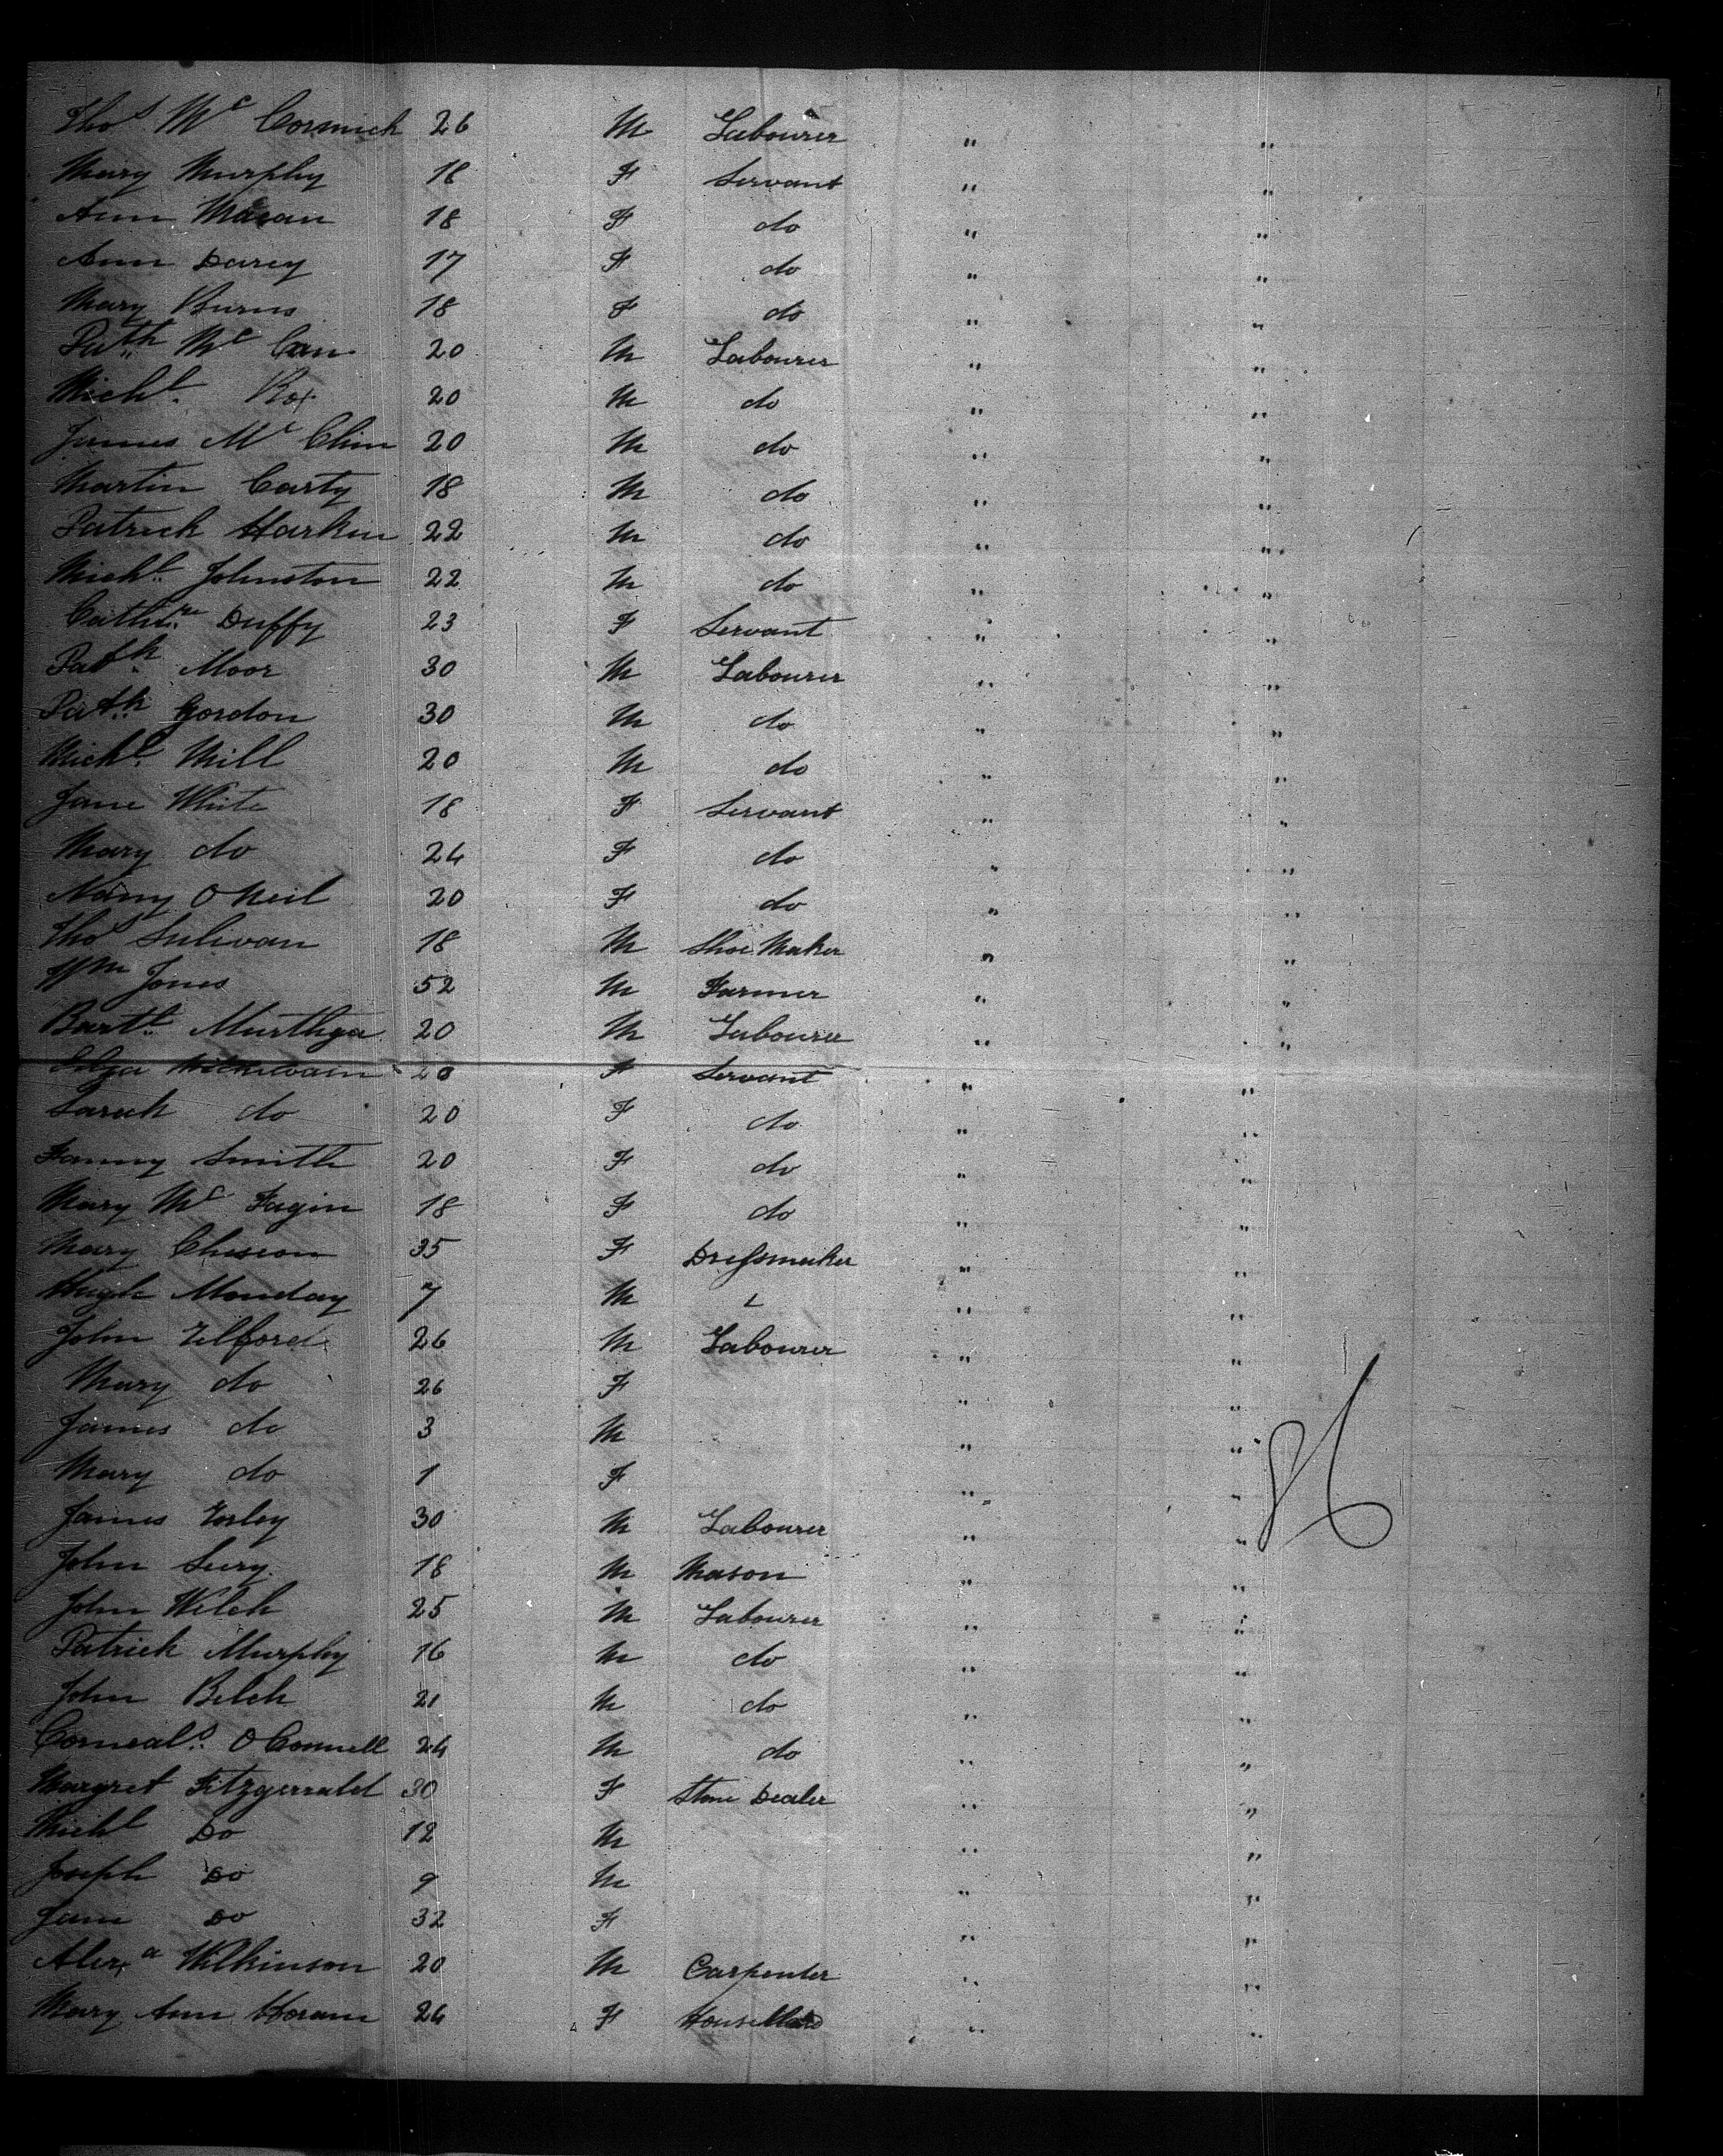 Thos. Mc Cormick 26 M Labourer " "
Mary Murphy 18 F Servant " "
Ann Macan 18 F do " "
Ann Darcy 17 F do " "
Mary Burns 18 F do " "
Patk Mc Can 20 M Labourer " "
Michl. 20 M do " "
James Mc Clim 20 M do " "
Martin Carty 18 M do " "
Patrick Harkin 22 M do " "
Michl. Johnston 22 M do " "
Duffy 23 F Servant " "
Patk. Moor 30 M Labourer " "
Patk. Gordon 30 M do " "
Michl. Mill 20 M do " "
Jane White 18 F Servant " "
Mary do 24 F do " "
O Neil 20 F do " "
Thos Sulivan 18 M Shoe Maker " "
Wm Jones 52 M Farmer " "
Bartt. Murthga 20 M Labourer " "
20 F Servant " "
Sarah do 20 F do " "
Fanny Smith 20 F do " "
Mary Mc Fagin 18 F do " "
Mary 35 F Dressmaker " "
Hugh Monday 7 M " "
John Telford 26 M Labourer " "
Mary do 26 F " "
James do 3 M " "
Mary do 1 F " "
James 30 M Labourer " "
John 18 M Mason " "
John Welch 25 M Labourer " "
Patrick Murphy 16 M do " "
John Belch 21 M do " "
Corneals. O Connell 24 M do " "
Margret Fitzgerrald 30 F Dealer " "
Michl Do 12 M " "
Joseph Do 9 M " "
Jane Do 32 F " "
Alexa Wilkinson 20 M Carpenter " "
Mary Ann Horam 26 F " "